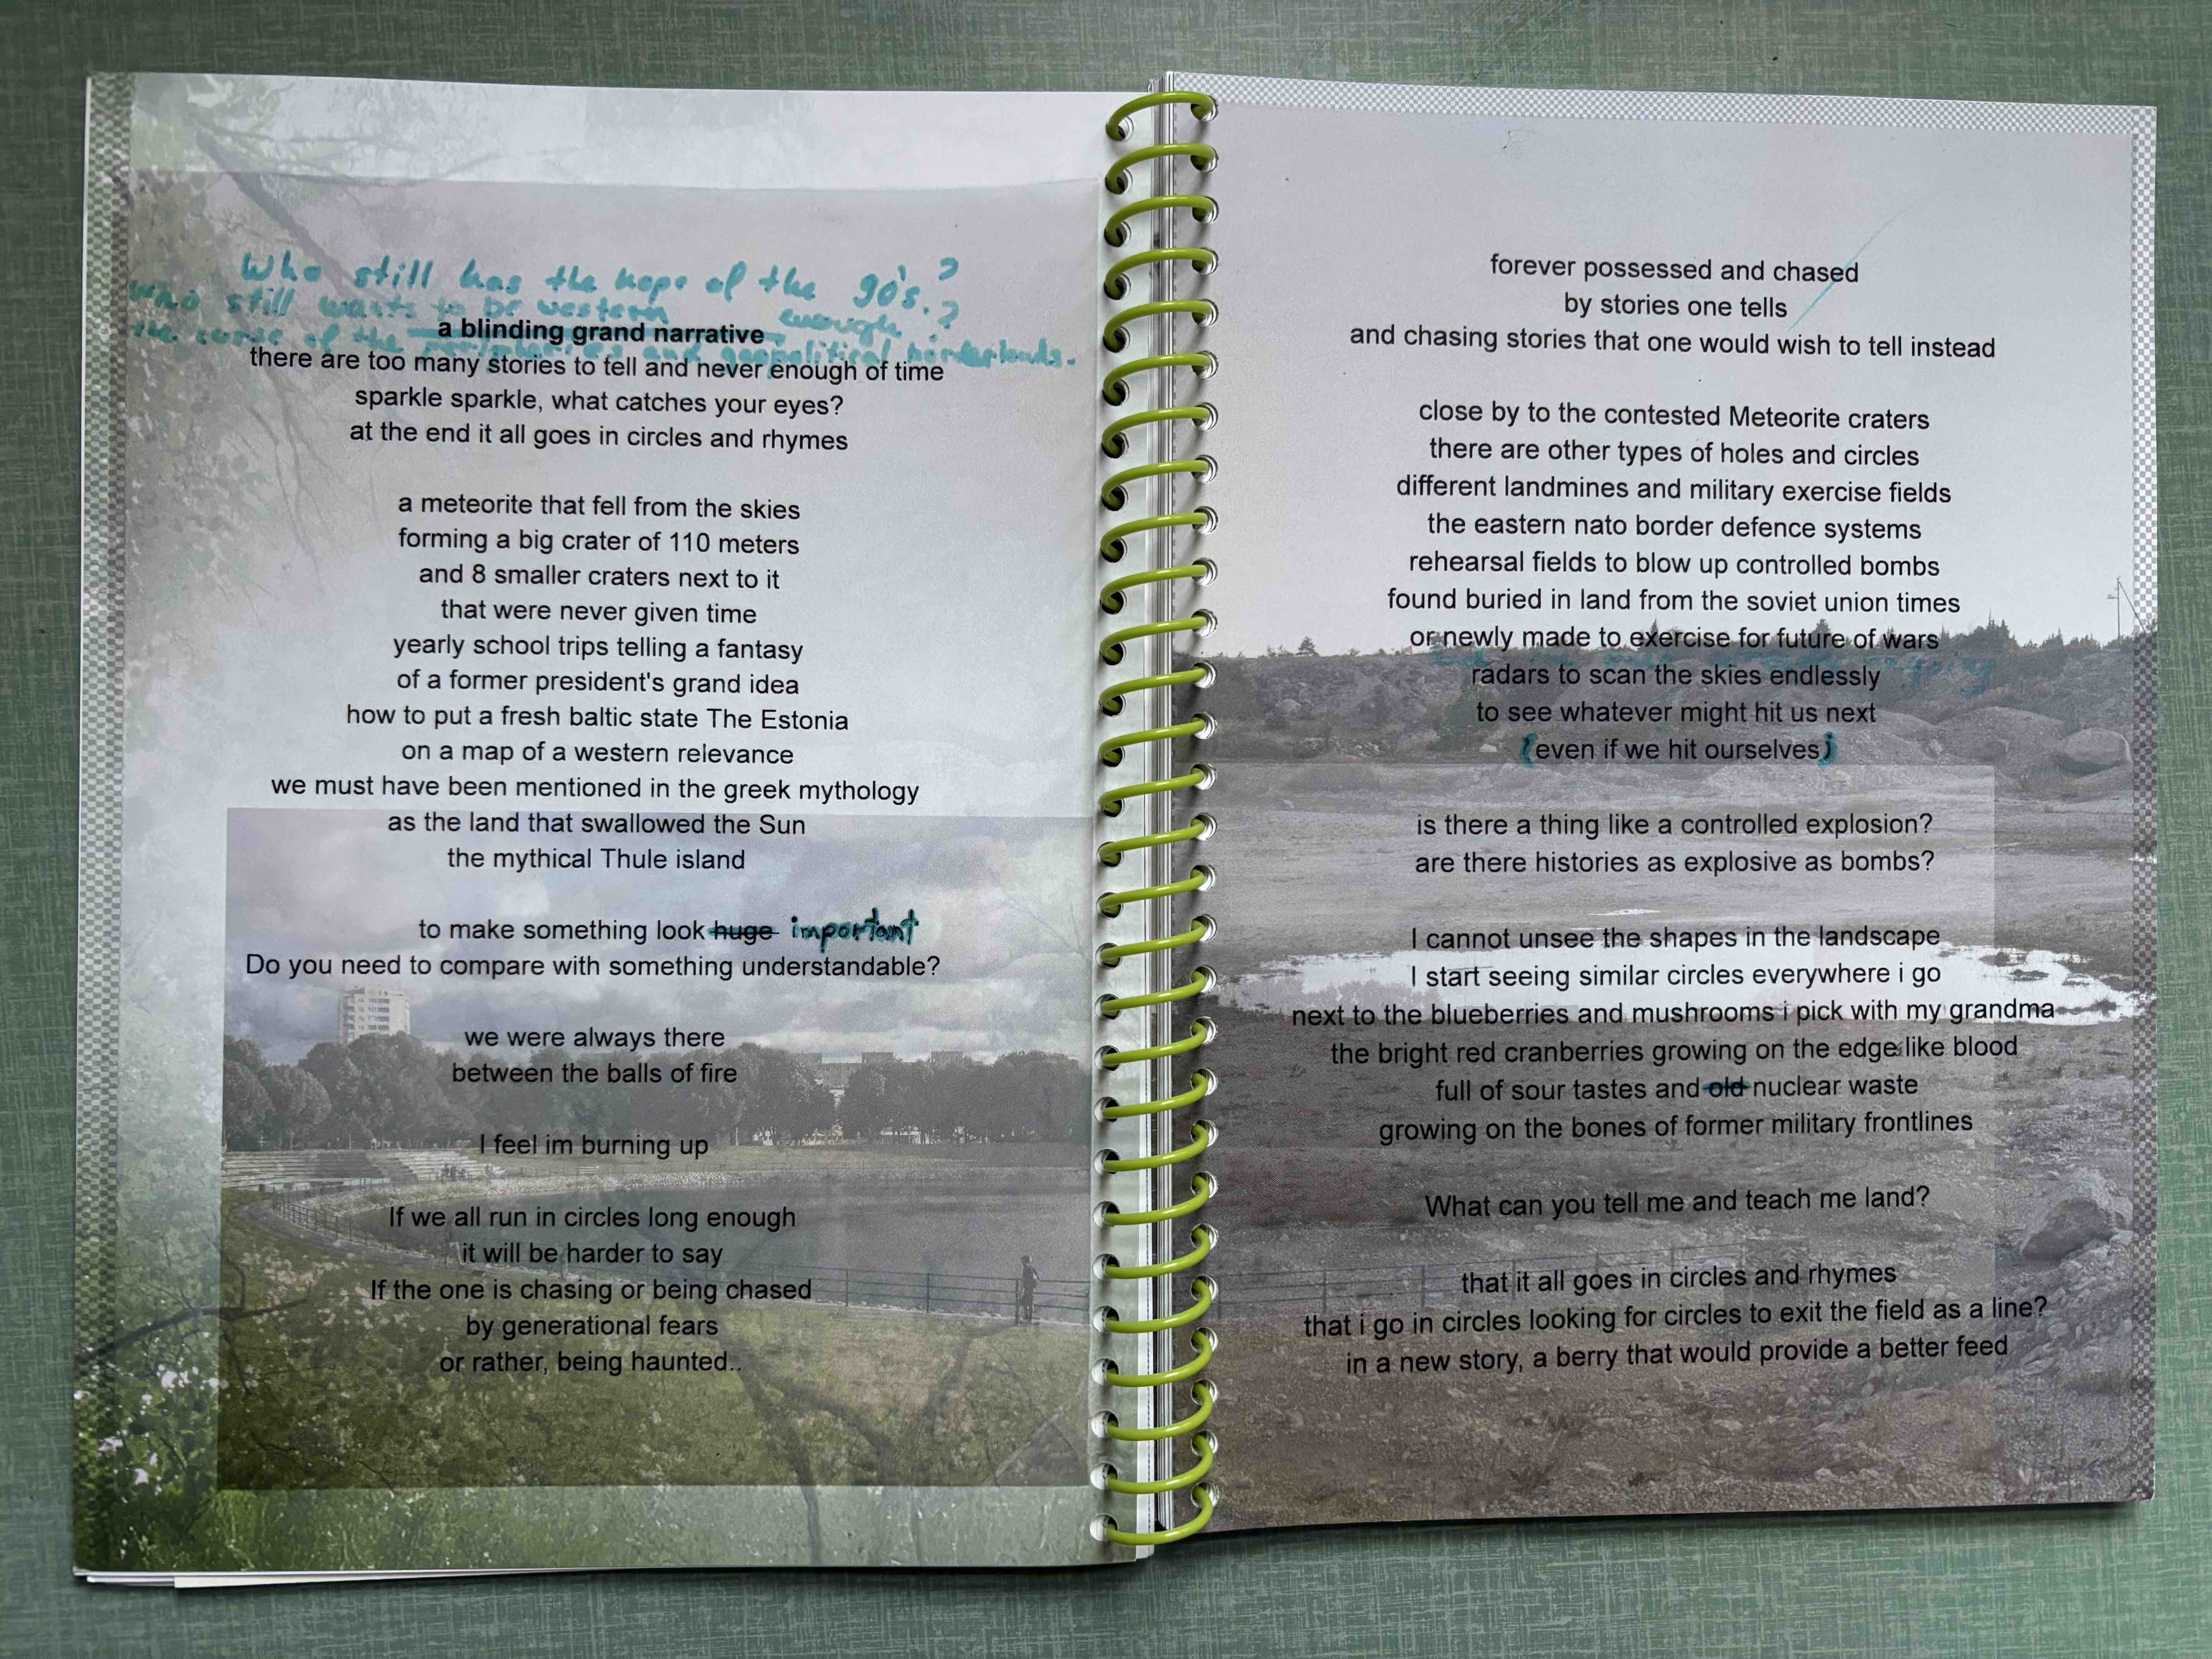 Who still has the hope of the 90's.?
who still wants to be western enough?
a blinding grand narrative
the curse of the and geopolitical borderlands.
there are too many stories to tell and never enough of time
sparkle sparkle, what catches your eyes?
at the end it all goes in circles and rhymes
a meteorite that fell from the skies
forming a big crater of 110 meters
and 8 smaller craters next to it
that were never given time
yearly school trips telling a fantasy
of a former president's grand idea
how to put a fresh baltic state The Estonia
on a map of a western relevance
we must have been mentioned in the greek mythology
as the land that swallowed the Sun
the mythical Thule island
to make something look huge important
Do you need to compare with something understandable?
we were always there
between the balls of fire
I feel im burning up
If we all run in circles long enough
it will be harder to say
If the one is chasing or being chased
by generational fears
or rather, being haunted..
forever possessed and chased
by stories one tells
and chasing stories that one would wish to tell instead
close by to the contested Meteorite craters
there are other types of holes and circles
different landmines and military exercise fields
the eastern nato border defence systems
rehearsal fields to blow up controlled bombs
found buried in land from the soviet union times
or newly made to exercise for future of wars
ongoing
radars to scan the skies endlessly
to see whatever might hit us next
(even if we hit ourselves)
is there a thing like a controlled explosion?
are there histories as explosive as bombs?
I cannot unsee the shapes in the landscape
I start seeing similar circles everywhere i go
next to the blueberries and mushrooms i pick with my grandma
the bright red cranberries growing on the edge like blood
full of sour tastes and old nuclear waste
growing on the bones of former military frontlines
What can you tell me and teach me land?
that it all goes in circles and rhymes
that i go in circles looking for circles to exit the field as a line?
in a new story, a berry that would provide a better feed